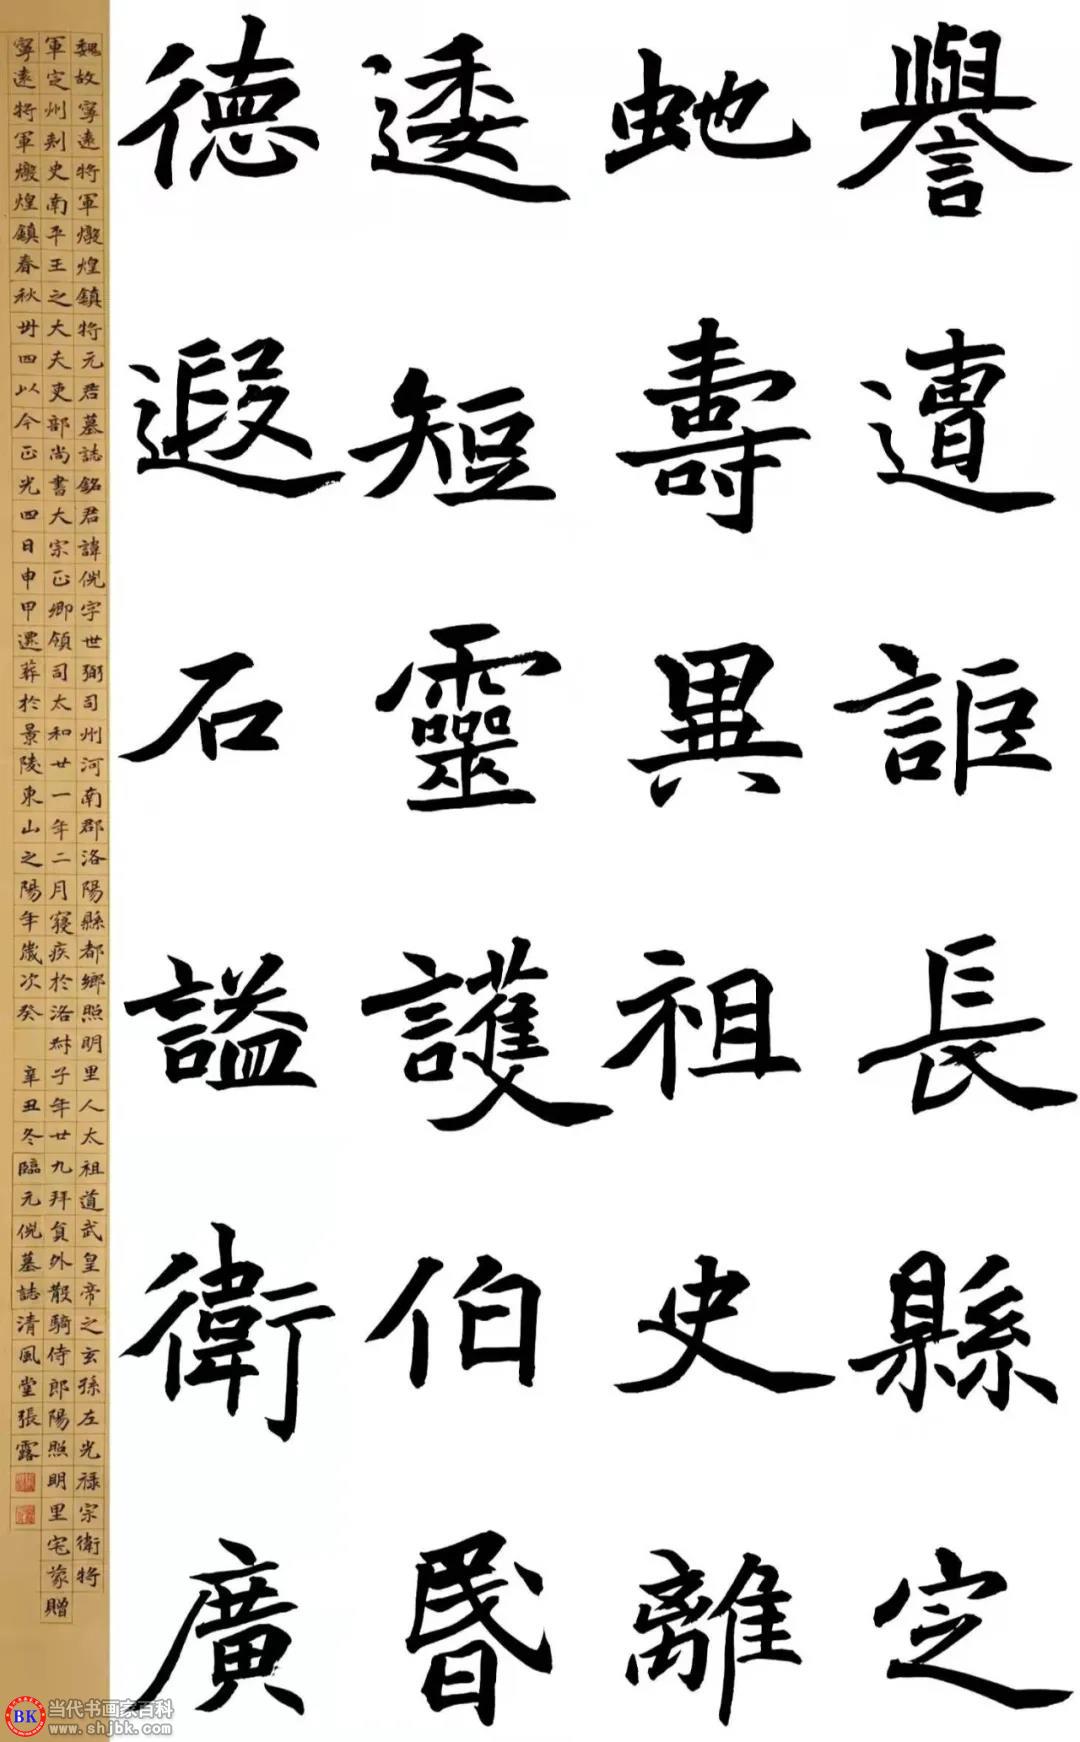 德逶虵譽
遐短壽遭
石靈異詎
謚護祖長
衛伯史縣
廣昬離定
魏故寧遠將軍燉煌鎮將元君墓誌銘君諱倪字世弼司州河南郡洛陽縣都鄉照明里人太祖道武皇帝之玄孫左光祿宗衛將
軍定州刺史南平王之大夫吏部尚書大宗正卿領司太和廿一年二月寢疾於洛時子年廿九拜負外散騎侍郎陽照明里宅蒙贈
寧遠將軍燉煌鎮春秋卅四以今正光四日申甲還葬於景陵東山之陽年歲次癸
辛丑冬臨元倪墓誌清風堂張露
BK
当代书画家百科
www.shjbk.com